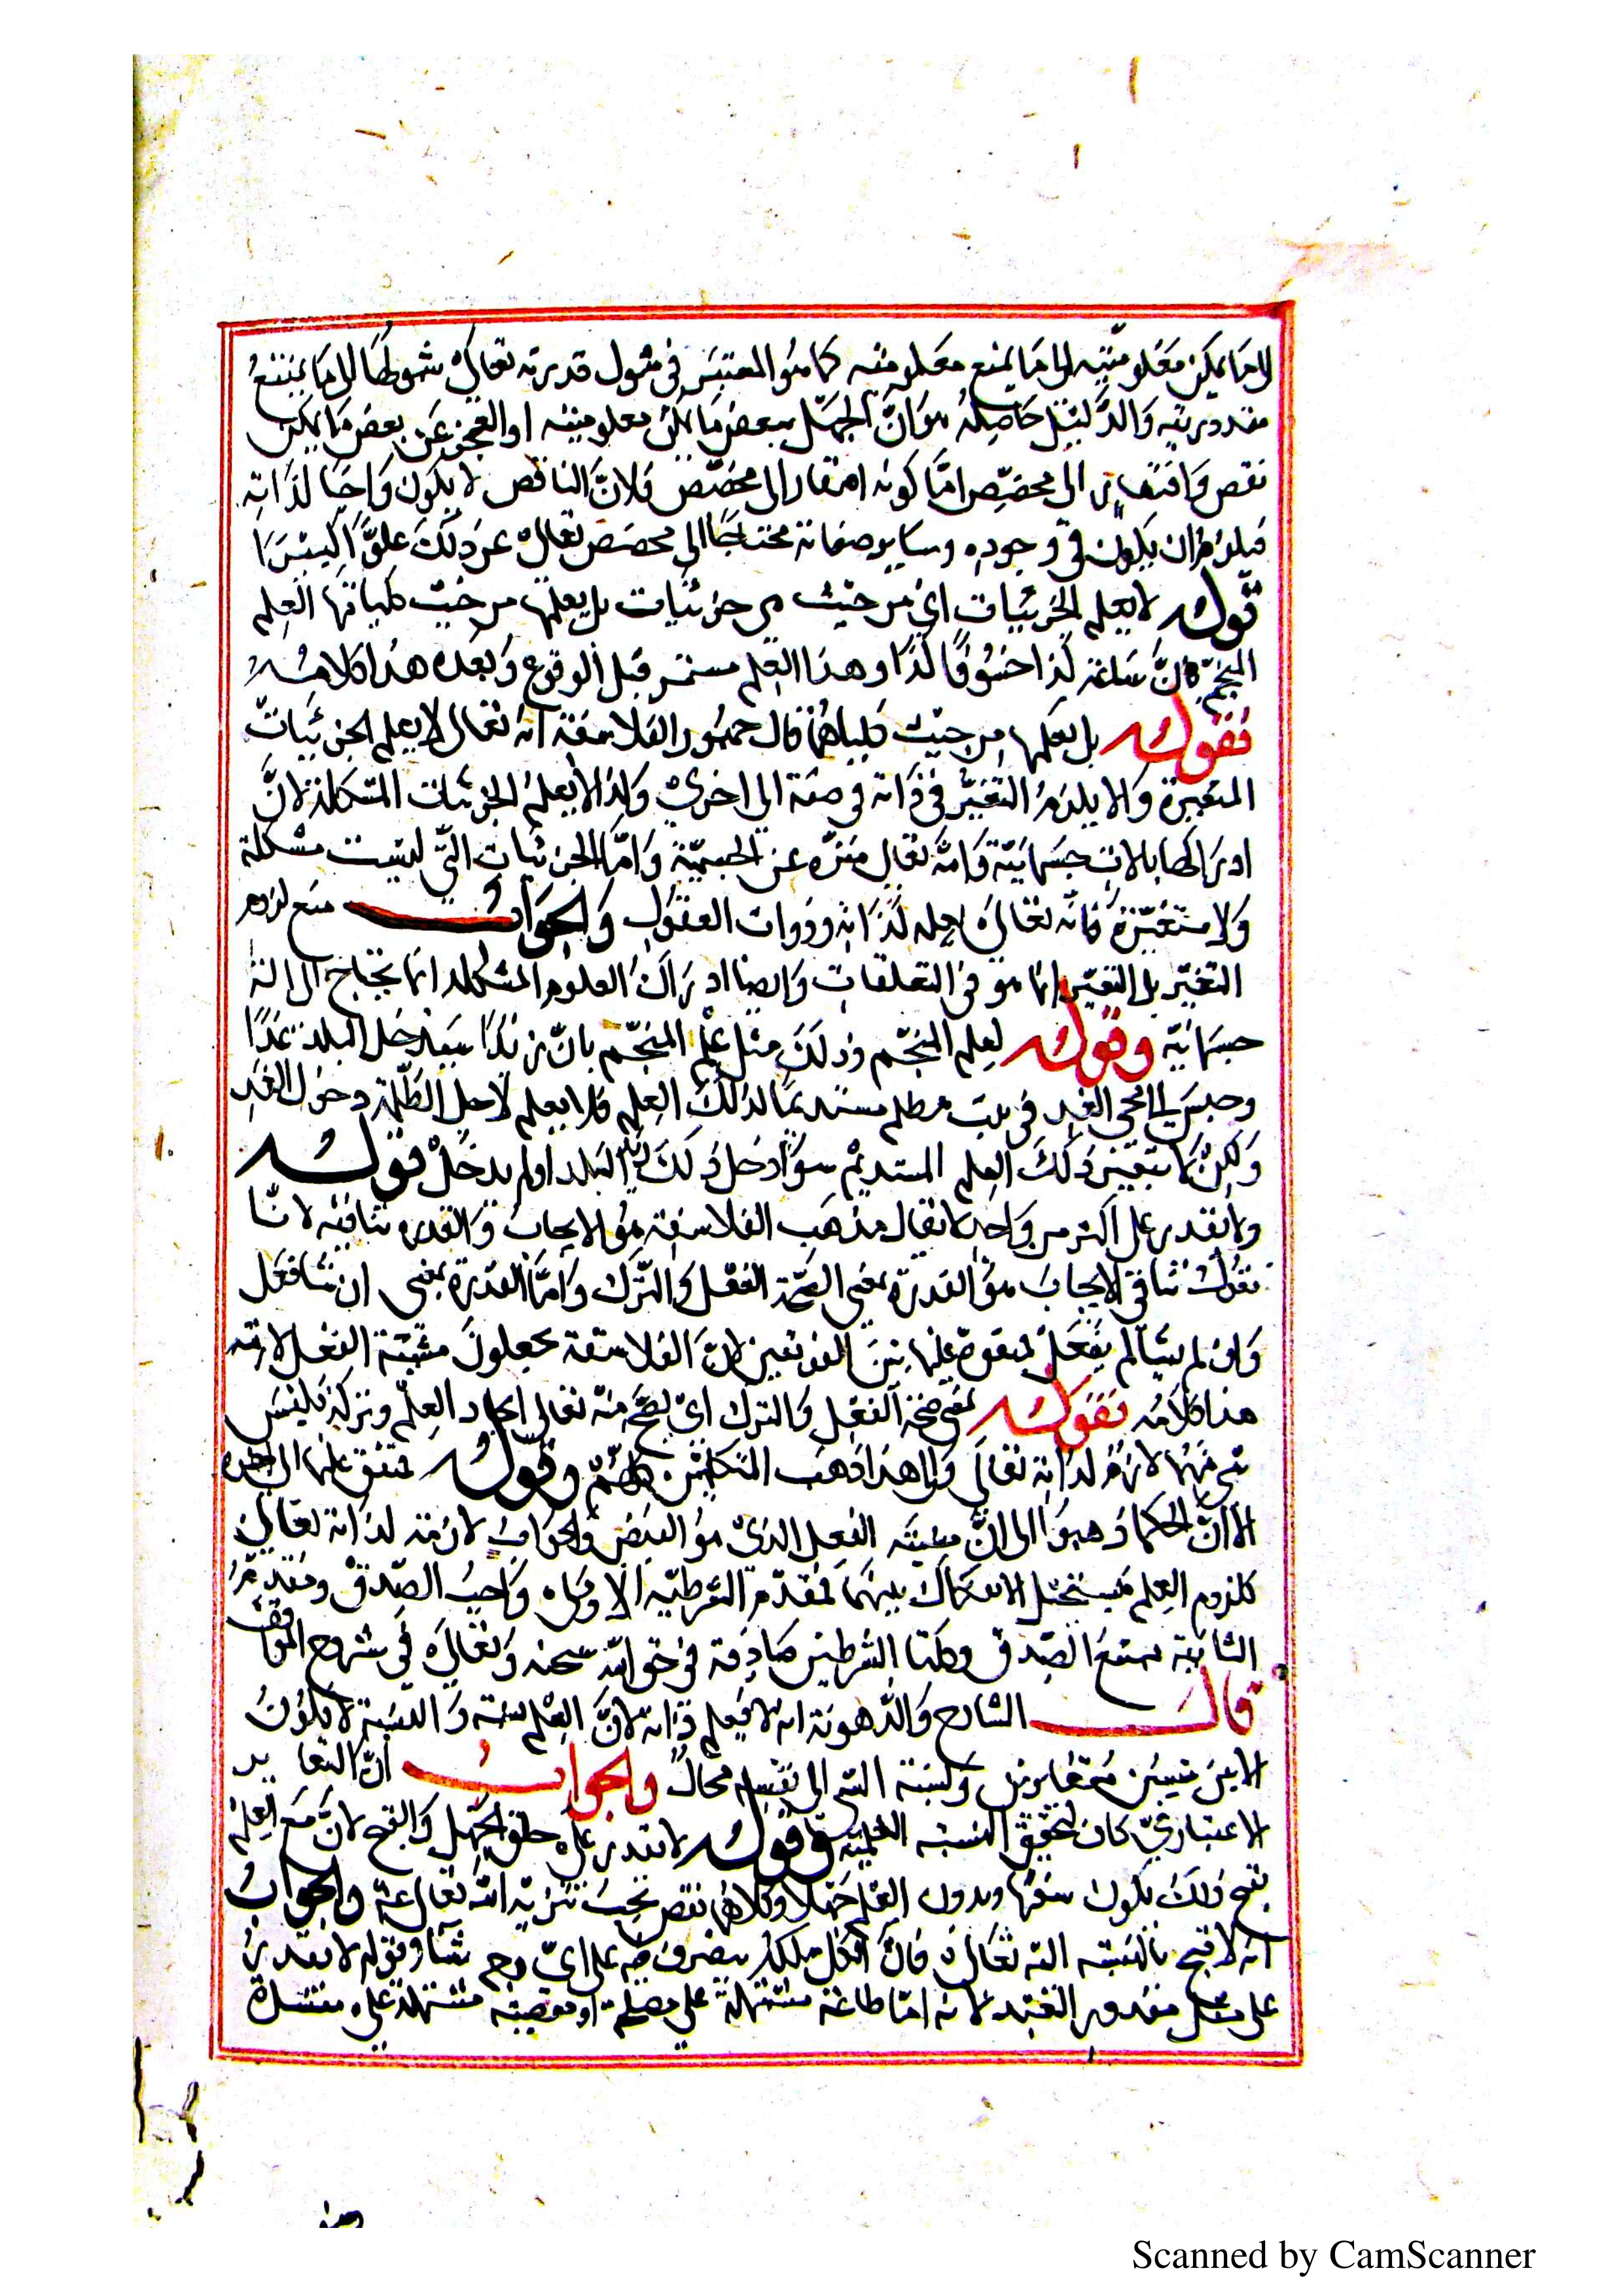 الى ما يمكن معلوميته الى ما يمنع معلوميته كما هو المعتبر فى شمول قدرته تعالى شمولها الى ما يمتنع
مقدوريته والدليل حاصله هو ان الجهل ببعض ما يمكن معلوميته او العجز عن بعض ما يمكن
نقص وافتقار الى مخصص اما كونه افتقارا الى مخصص فلان الناقص لا يكون واجبا لذاته
فيلزم ان يكون فى وجوده وساير صفاته محتاجا الى مخصص تعالى عن ذلك علوا كبيرا
قوله لا يعلم الجزئيات اى من حيث هى جزئيات بل يعلمها من حيث كلياتها العلم
المنجم كان ساعة كذا خسوفا كذا وهذا العلم مستمر قبل الوقوع وبعده هذا كلامه
فقوله بل يعلمها من حيث كلياتها قال جمهور الفلاسفة انه تعالى لا يعلم الجزئيات
المتغيرة والا يلزم التغير فى ذاته فى صفة الى اخرى وكذا لا يعلم الجزئيات المتشكلة لان
ادراكها بالات جسمانية وانه تعالى منزه عن الجسمية واما الجزئيات التى ليست مشكلة
ولا متغيرة فانه تعالى يعلمه لذاته وذوات العقول والجواب منع لزوم
التغير بل التغير انما هو فى التعلقات وايضا ادراك العلوم المشكله انما يحتاج الى الة
جسمانية وقوله لعلم المنجم وذلك مثل علم المنجم بان زيدا سيدخل البلد غدا
وجلس الى مجى الغد فى بيت مظلم مستديما لذلك العلم فلا يعلم لاجل الظلمة دخول الغد
ولكن لا يتغير ذلك العلم المستديم سوا دخل ذلك زيد البلد او لم يدخل قوله
ولا يقدر على اكثر من واحد لا يقال مذهب الفلاسفة هو الايجاب والقدره تنافيه لانا
نقول تنافى الايجاب هو القدرة بمعنى الصحة الفعل والترك واما القدرة بمعنى ان شا فعل
وان لم يشا لم يفعل بين الفريقين لان الفلاسفة يجعلون مشيئة الفعل لازمة
هذا كلامه فقوله بمعنى صحة الفعل والترك اى يصح منه تعالى ايجاد العلم وتركه فليس
شى منهما لازم لذاته تعالى والى هذا ذهب المتكلمين كلهم وقوله متفق عليها الى اخره
الا ان الحكما ذهبوا الى ان مشيئه الفعل الذى هو الفيض والجواب لازمة لذاته تعالى
كلزوم العلم فيستحيل الانفكاك بينهما فمقدم الشرطيه الاولى واجب الصدق ومقدم
الثانية ممتنع الصدق وكلتا الشرطيتين صادقة فى حق الله سبحنه وتعالى فى شروح المواقف
قال الشارح والدهرية انه لا يعلم ذاته لان العلم نسبة والنسبة لا يكون
الا بين شيئين متغايرين ونسبة الشى الى نفسه محال والجواب ان التغاير
الاعتبارى كان لتحقيق النسبة العلمية وقوله لا يقدر على خلق الجهل والقبح لان مع العلم
بقبح ذلك يكون سفها وبدون العلم جهلا وكلاهما نقص يجب تنزيه الله تعالى عنه والجواب
انه لا قبح بالنسبة اليه تعالى فان الكل ملكه يتصرف فيه على اى وجه شا وقوله لا يقدر
على مثل مقدور العبد لانه اما طاعة مشتملة على مصلحة او معصية مشتملة على مفسدة
Scanned by CamScanner